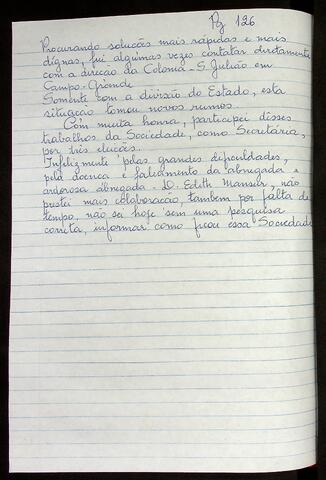 Pg 126
Procurando soluções mais rápidas e mais
dignas, fui algumas vezes contatar diretamente
com a direção da Colonia - S. Julião em
Campo - Grande
Somente com a divisão do Estado, esta
situação tomou novos rumos.
Com muita honra, participei desses
trabalhos da Sociedade, como Secretária,
por três eleições.
Infelizmente pelas grandes dificuldades,
pela doença e falecimento da abnegada e
ardorosa abnegada - D. Edith Mansur, não
prestei mais colaboração, também por falta de
tempo, não sei hoje sem uma pesquisa
correta, informar como ficou essa Sociedade